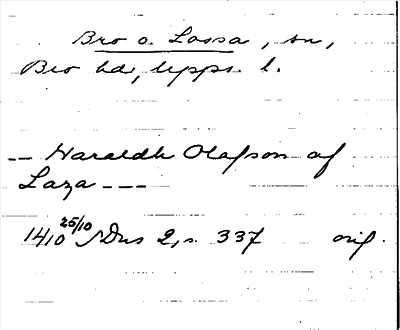 Bro o. Lossa, sn,
Bro hd, Upps. l.
-- Haraldh Olafson af
Laza ---
1410 25/10 SDns 2, s. 337 orig.